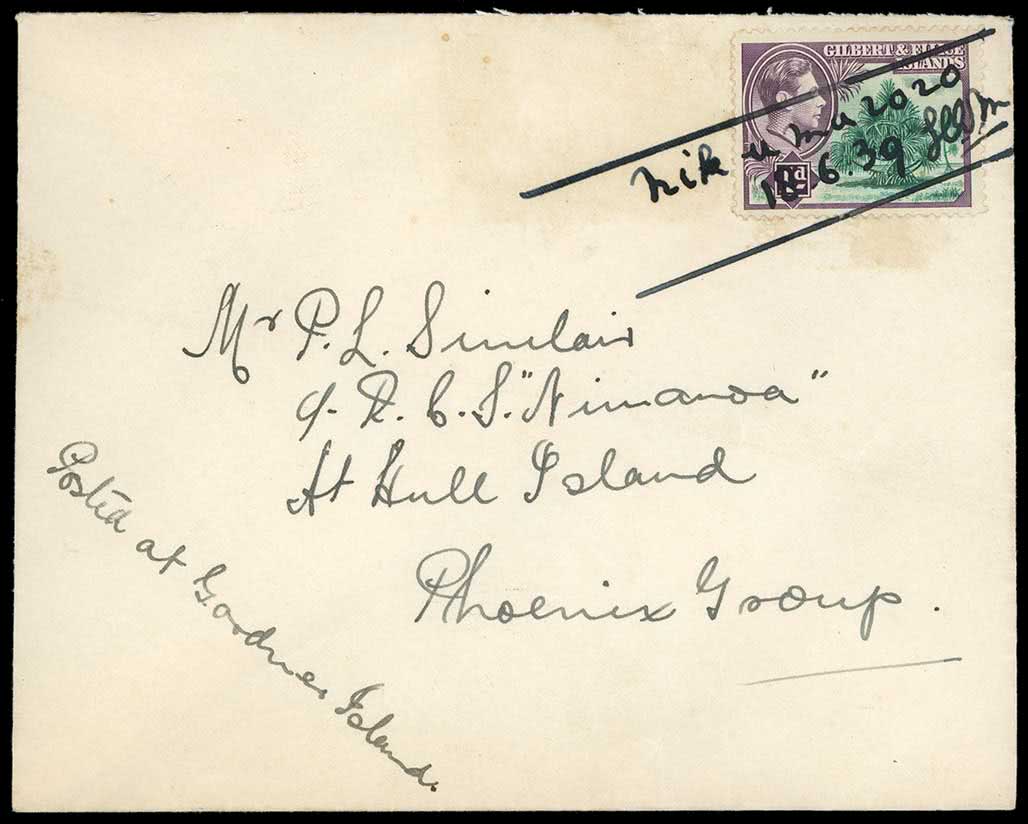 GILBERT & ELLICE
ISLANDS
Nikumu2020
18.6.39
Mr P. L. Sinclair
c/- R. C. S. "Nimanoa"
At Hull Island
Phoenix Group.
Posted at Gardner Island.